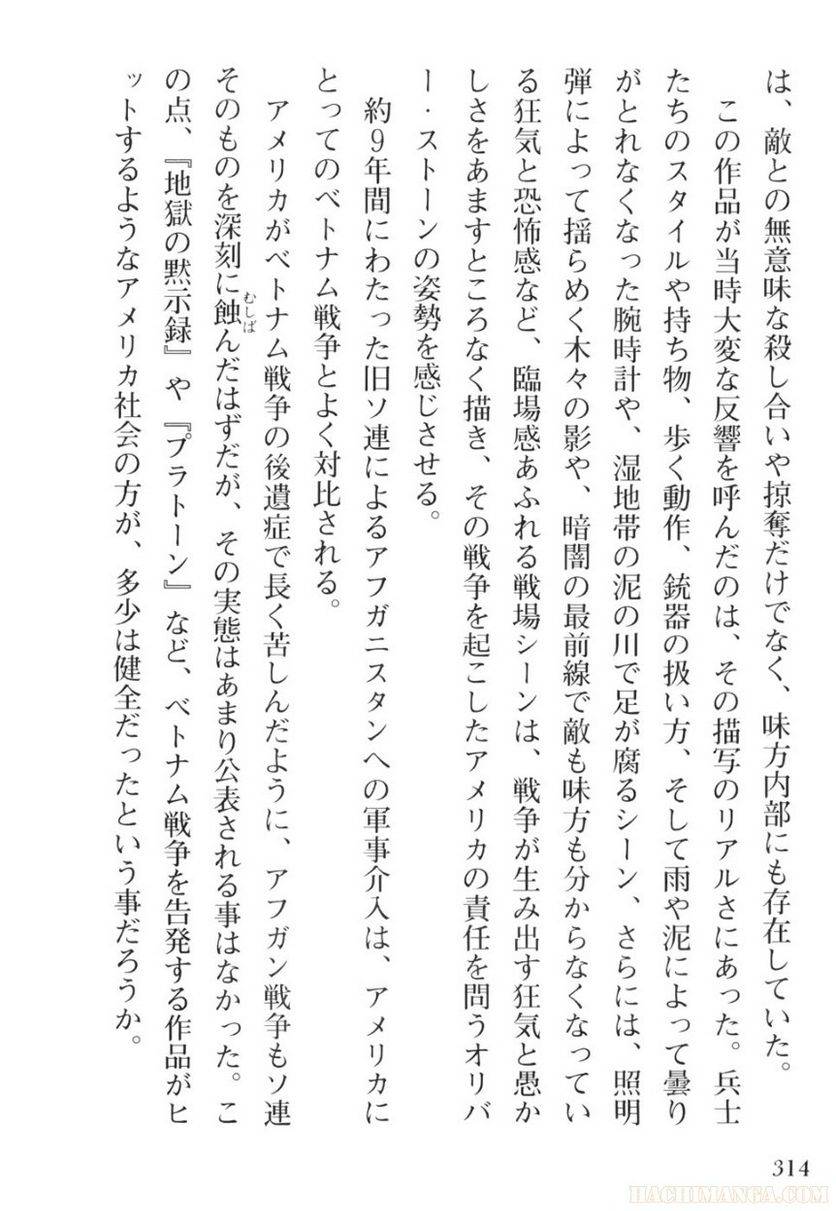 は、敵との無意味な殺し合いや掠奪だけでなく、味方内部にも存在していた。
この作品が当時大変な反響を呼んだのは、その描写のリアルさにあった。兵士
たちのスタイルや持ち物、歩く動作、銃器の扱い方、そして雨や泥によって曇り
がとれなくなった腕時計や、湿地帯の泥の川で足が腐るシーン、さらには、照明
弾によって揺らめく木々の影や、暗闇の最前線で敵も味方も分からなくなってい
る狂気と恐怖感など、臨場感あふれる戦場シーンは、戦争が生み出す狂気と愚か
しさをあますところなく描き、その戦争を起こしたアメリカの責任を問うオリバ
ー・ストーンの姿勢を感じさせる。
約9年間にわたった旧ソ連によるアフガニスタンへの軍事介入は、アメリカに
とってのベトナム戦争とよく対比される。
アメリカがベトナム戦争の後遺症で長く苦しんだように、アフガン戦争もソ連
そのものを深刻に蝕んだはずだが、その実態はあまり公表される事はなかった。こ
むしば
の点、『地獄の黙示録』や『プラトーン』など、ベトナム戦争を告発する作品がヒ
ットするようなアメリカ社会の方が、多少は健全だったという事だろうか。
314
HACHIMANGA.COM